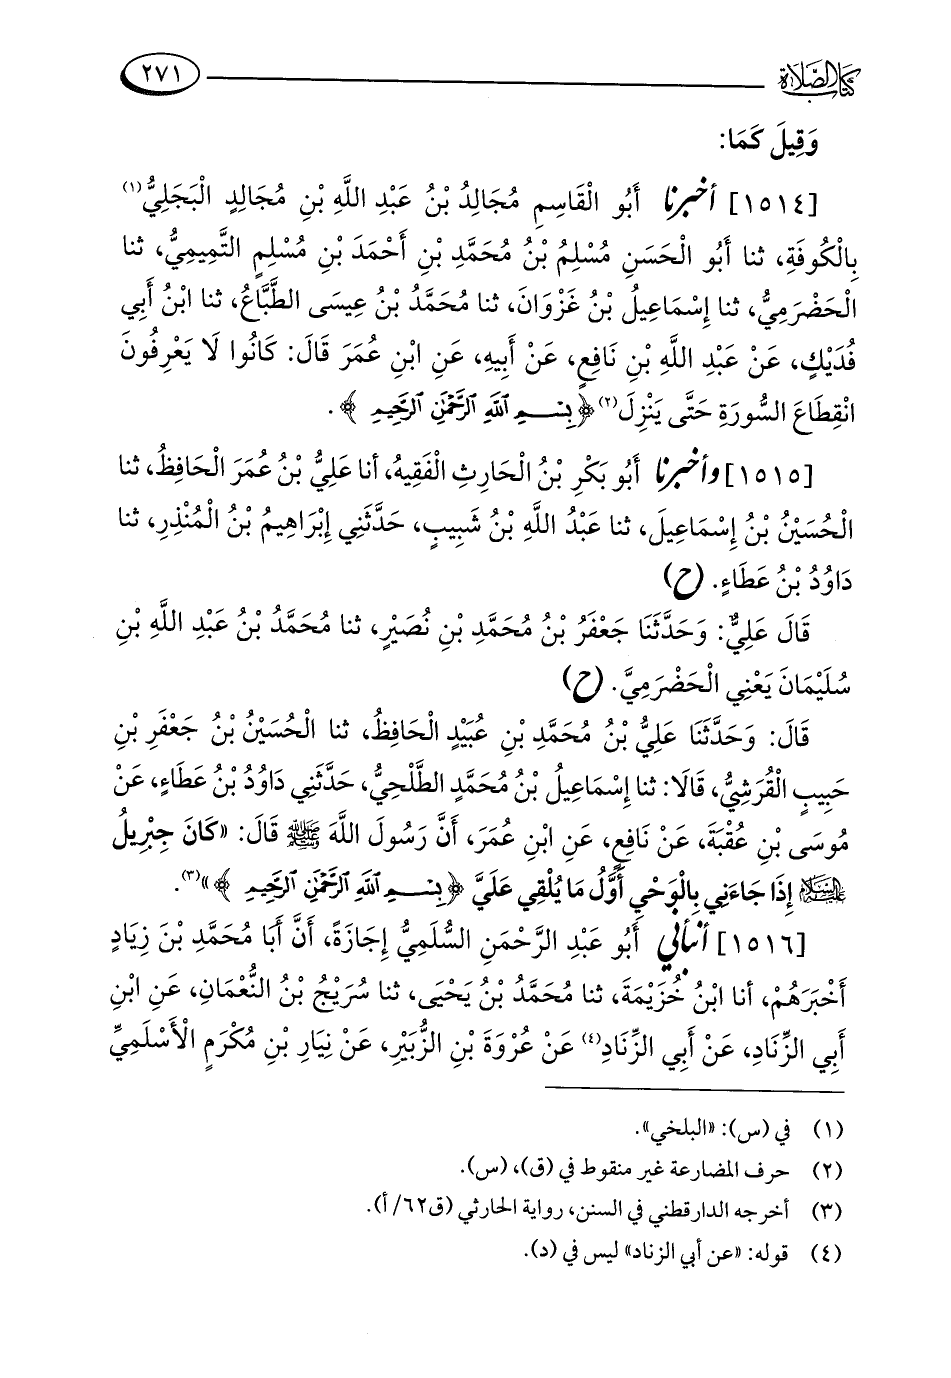 كتاب الصلاة
٢٧١
وَقِيلَ كَمَا:
[١٥١٤] أخبرنا أَبُو الْقَاسِمِ مُجَالِدُ بْنُ عَبْدِ اللَّهِ بْنِ مُجَالِدٍ الْبَجَلِيُّ(١)
بِالْكُوفَةِ، ثنا أَبُو الْحَسَنِ مُسْلِمُ بْنُ مُحَمَّدِ بْنِ أَحْمَدَ بْنِ مُسْلِمٍ التَّمِيمِيُّ، ثنا
الْحَضْرَمِيُّ، ثنا إِسْمَاعِيلُ بْنُ غَزْوَانَ، ثنا مُحَمَّدُ بْنُ عِيسَى الطَّبَّاعُ، ثنا ابْنُ أَبِي
فُدَيْكٍ، عَنْ عَبْدِ اللَّهِ بْنِ نَافِعٍ، عَنْ أَبِيهِ، عَنِ ابْنِ عُمَرَ قَالَ: كَانُوا لَا يَعْرِفُونَ
انْقِطَاعَ السُّورَةِ حَتَّى يَنْزِلَ(٢) ﴿بِسْمِ ٱللَّهِ ٱلرَّحْمَٰنِ ٱلرَّحِيمِ﴾.
[١٥١٥] وأخبرنا أَبُو بَكْرِ بْنُ الْحَارِثِ الْفَقِيهُ، أنا عَلِيُّ بْنُ عُمَرَ الْحَافِظُ، ثنا
الْحُسَيْنُ بْنُ إِسْمَاعِيلَ، ثنا عَبْدُ اللَّهِ بْنُ شَبِيبٍ، حَدَّثَنِي إِبْرَاهِيمُ بْنُ الْمُنْذِرِ، ثنا
دَاوُدُ بْنُ عَطَاءٍ. (ح)
قَالَ عَلِيٌّ: وَحَدَّثَنَا جَعْفَرُ بْنُ مُحَمَّدِ بْنِ نُصَيْرٍ، ثنا مُحَمَّدُ بْنُ عَبْدِ اللَّهِ بْنِ
سُلَيْمَانَ يَعْنِي الْحَضْرَمِيَّ. (ح)
قَالَ: وَحَدَّثَنَا عَلِيُّ بْنُ مُحَمَّدِ بْنِ عُبَيْدٍ الْحَافِظُ، ثنا الْحُسَيْنُ بْنُ جَعْفَرِ بْنِ
حَبِيبٍ الْقُرَشِيُّ، قَالَا: ثنا إِسْمَاعِيلُ بْنُ مُحَمَّدٍ الطَّلْحِيُّ، حَدَّثَنِي دَاوُدُ بْنُ عَطَاءٍ، عَنْ
مُوسَى بْنِ عُقْبَةَ، عَنْ نَافِعٍ، عَنِ ابْنِ عُمَرَ، أَنَّ رَسُولَ اللَّهَ ﷺ قَالَ: «كَانَ جِبْرِيلُ
عليه السلام إِذَا جَاءَنِي بِالْوَحْيِ أَوَّلُ مَا يُلْقِي عَلَيَّ ﴿بِسْمِ ٱللَّهِ ٱلرَّحْمَٰنِ ٱلرَّحِيمِ﴾»(٣).
[١٥١٦] أنبأني أَبُو عَبْدِ الرَّحْمَنِ السُّلَمِيُّ إِجَازَةً، أَنَّ أَبَا مُحَمَّدِ بْنَ زِيَادٍ
أَخْبَرَهُمْ، أنا ابْنُ خُزَيْمَةَ، ثنا مُحَمَّدُ بْنُ يَحْيَى، ثنا سُرَيْجُ بْنُ النُّعْمَانِ، عَنِ ابْنِ
أَبِي الزِّنَادِ، عَنْ أَبِي الزِّنَادِ(٤) عَنْ عُرْوَةَ بْنِ الزُّبَيْرِ، عَنْ نِيَارِ بْنِ مُكْرَمٍ الْأَسْلَمِيِّ
(١) في (س): «البلخي».
(٢) حرف المضارعة غير منقوط في (ق)، (س).
(٣) أخرجه الدارقطني في السنن، رواية الحارثي (ق٦٢/ أ).
(٤) قوله: «عن أبي الزناد» ليس في (د).